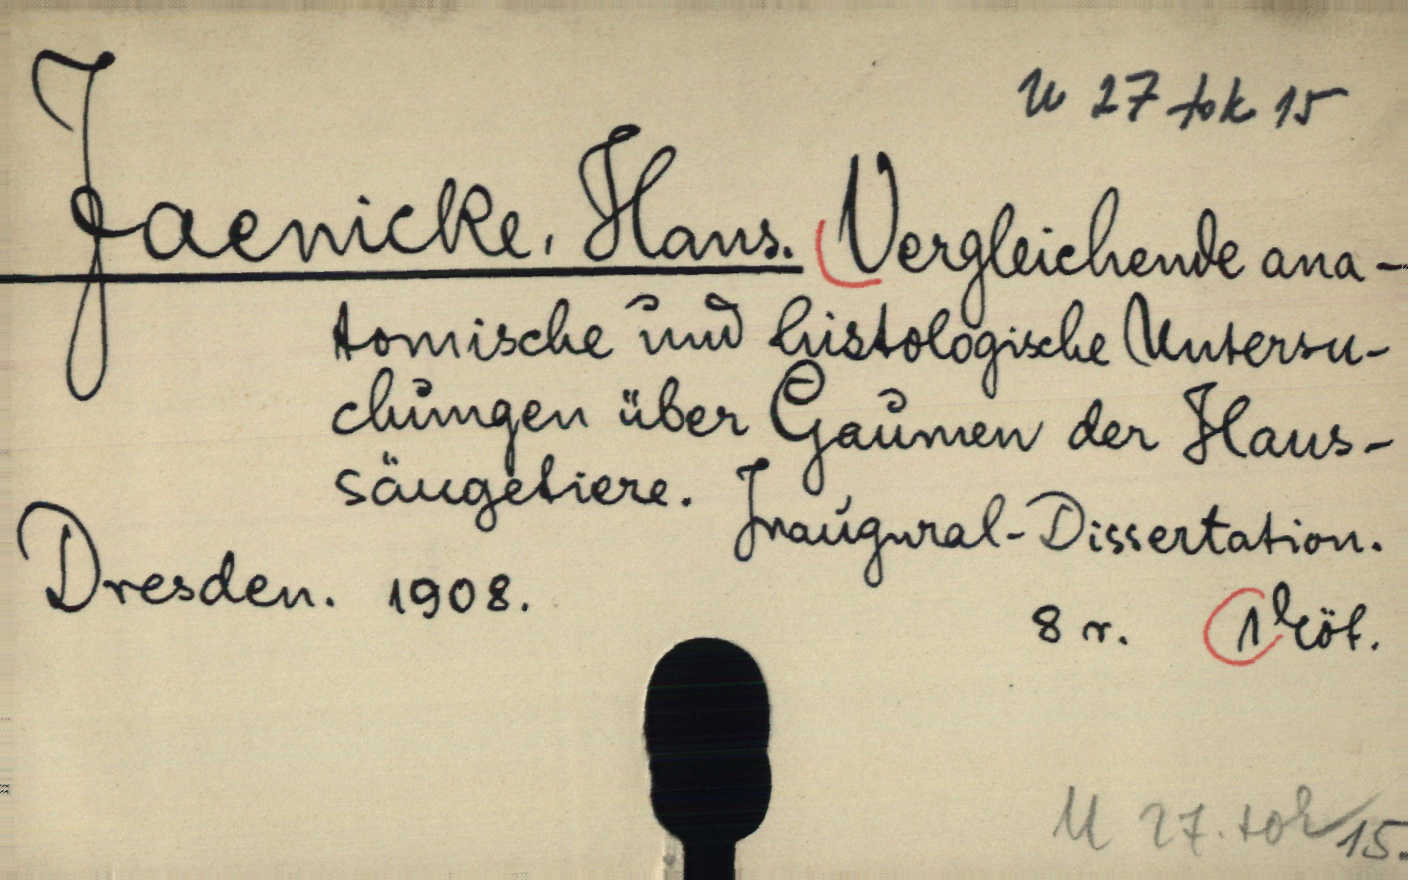 U 27 tok 15
Jaenicke, Hans. Vergleichende ana-
tomische und histologische Untersu-
chungen über Gaumen der Haus-
säugetiere. Inaugural-Dissertation.
Dresden. 1908.
8 r. 1 köt.
U 27. tok 15.